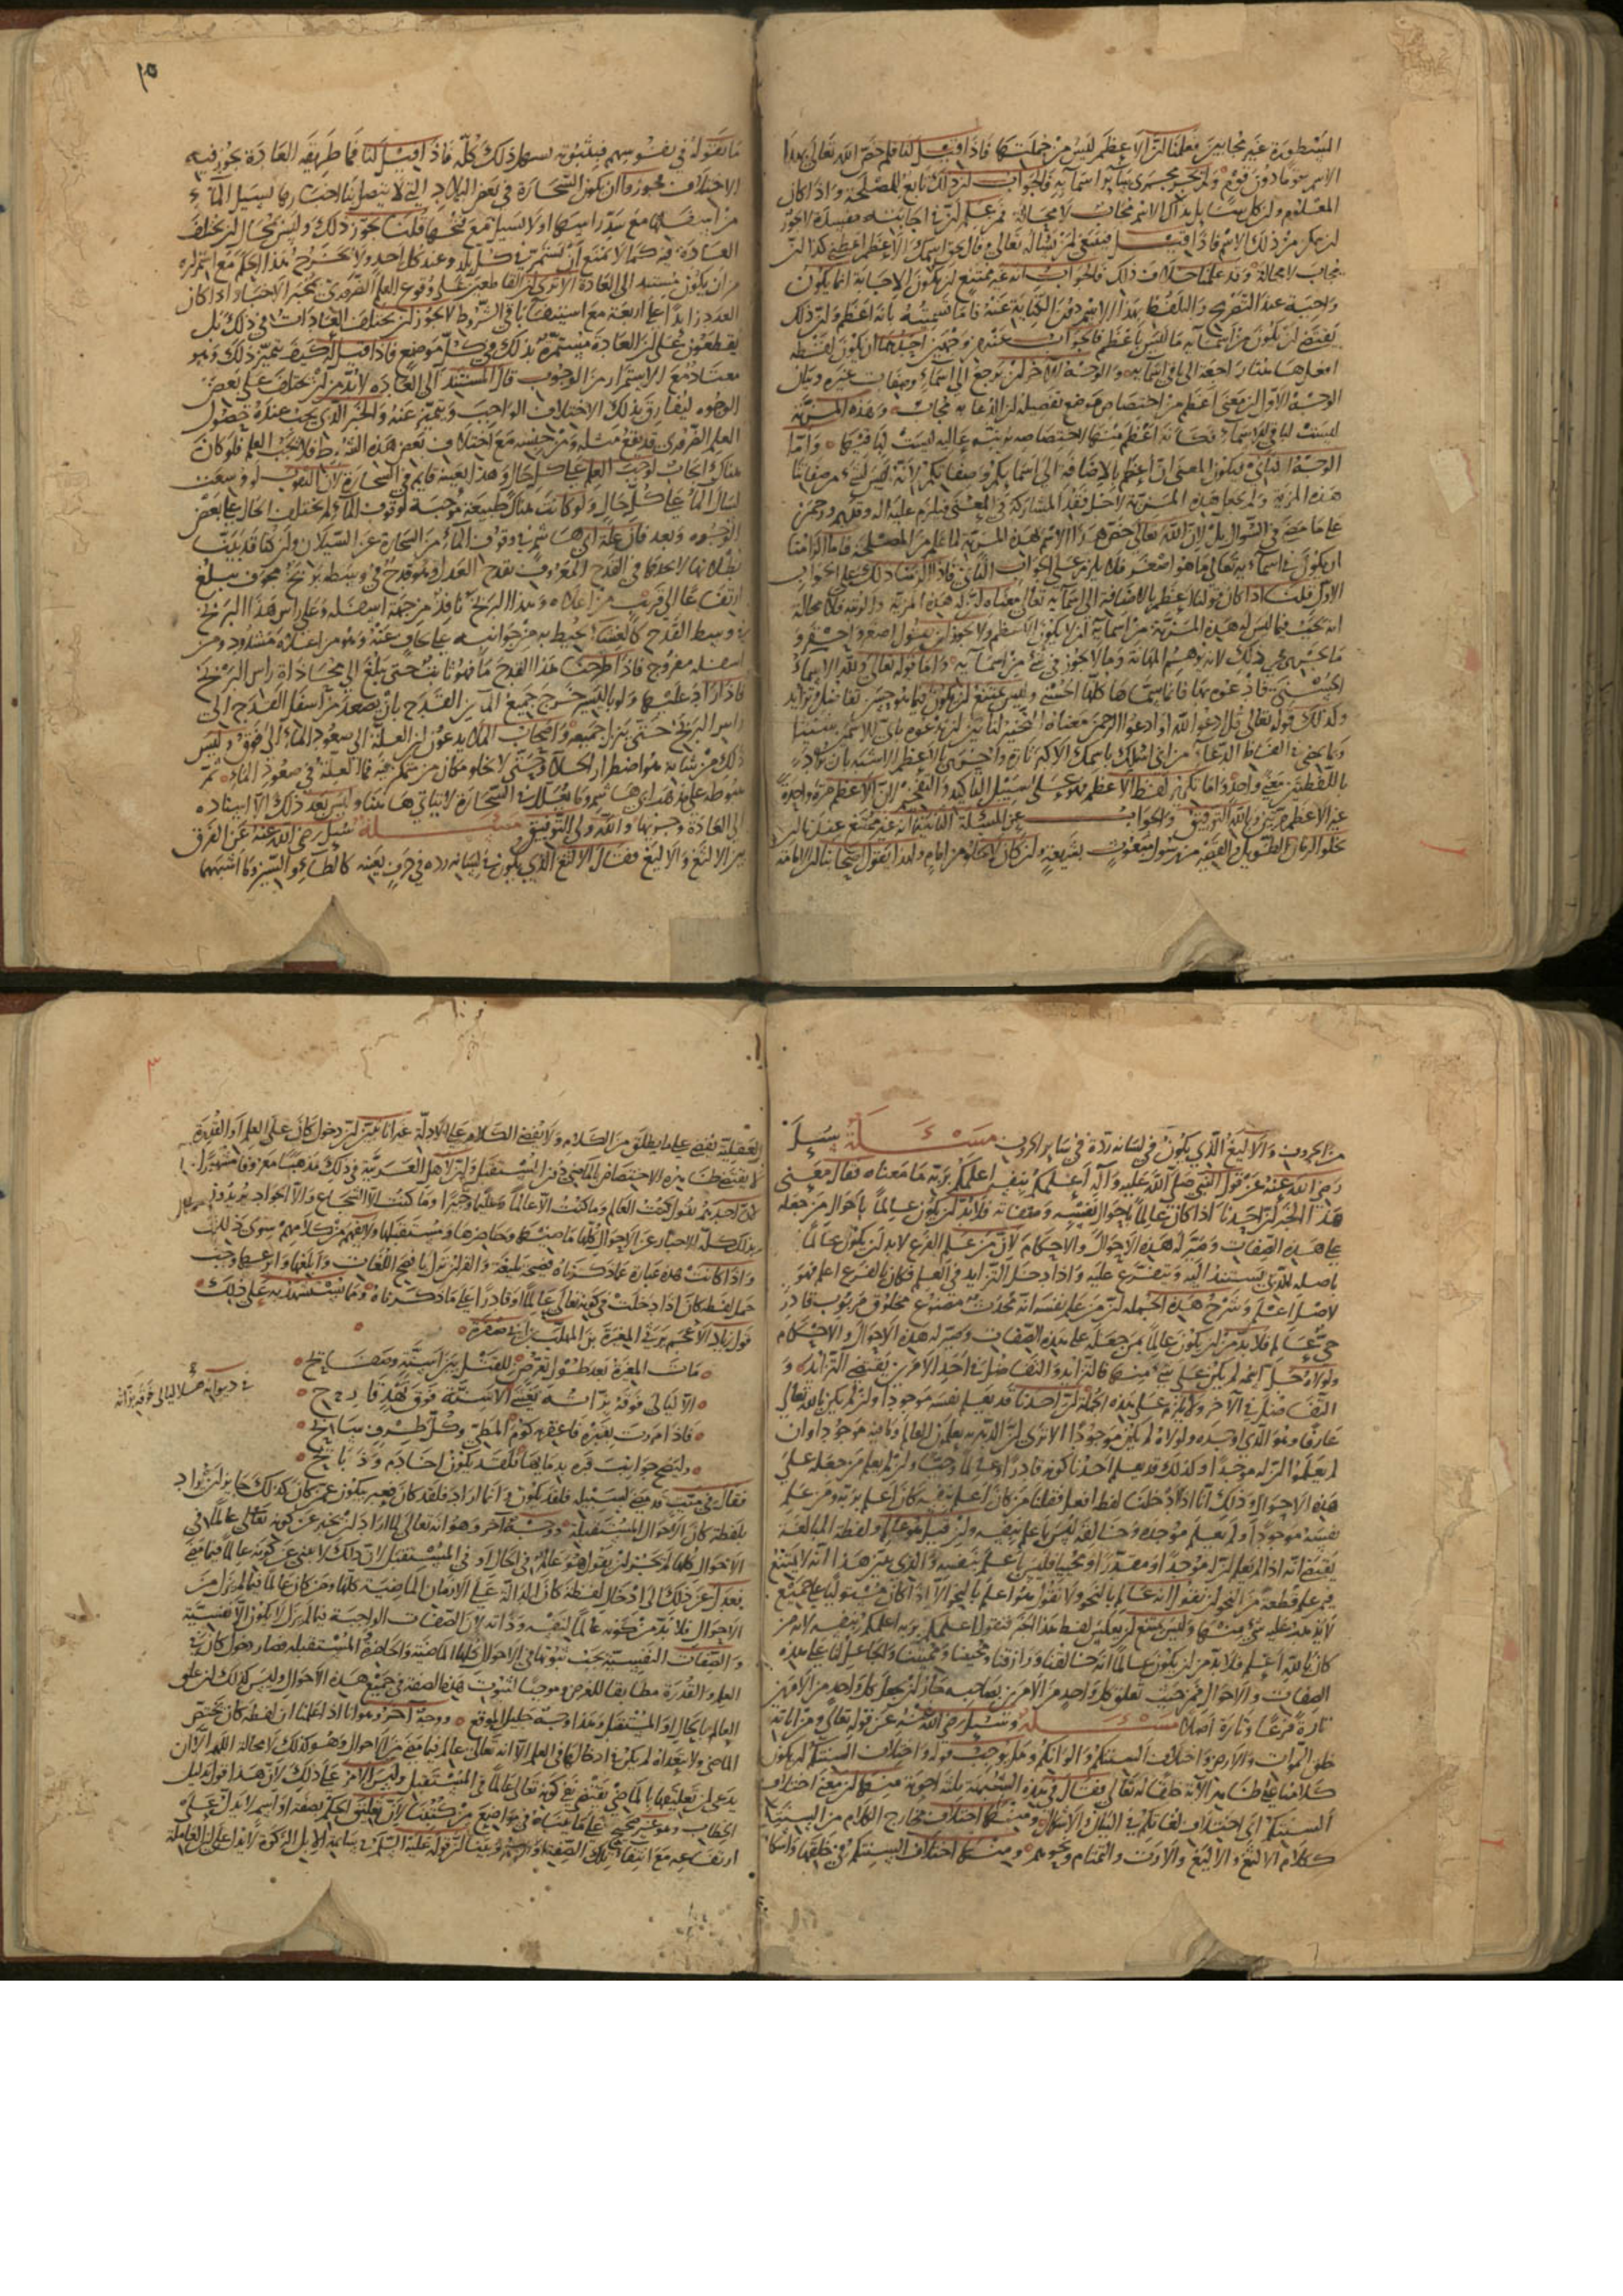 المسطورة غير مجابين فعلمنا ان الاعظم ليس من جملتها فاذا قيل لنا فلم خص الله تعالى بهذا
الاسم قوما دون قوم ولم يجر مجرى سائر اسمائه فالجواب ان ذلك تابع للمصلحة واذا كان
المعلوم ان كل من دعا بهذا الاسم يجاب لا محالة فمن علم ان في اجابته مفسدة لا يجوز
ان يمكن من ذلك الاسم فاذا قيل فينبغي لمن يسأل الله تعالى وقال بحق اسمك الاعظم اعطني كذا ان
يجاب لا محالة وقد علمنا خلاف ذلك فالجواب انه غير ممتنع ان تكون الاجابة انما يكون
واجبة عند التصريح والتلفظ بهذا الاسم دون الكناية عنه فاما تسميته بانه اعظم وان ذلك
يقتضي ان يكون من اسمائه ما ليس باعظم فالجواب عنه من وجهين احدهما ان يكون لفظة
الوجه الاول ان معنى اعظم من اختصاص موضع تفضيله ان الدعاء به مجاب وهذه المزية
ليست لباقي الاسماء فكانه اعظم منها لاختصاصه برتبة عالية ليست لباقيها واما
الوجه الثاني فيكون المعنى انه اعظم بالاضافة الى اسمائكم وصفاتكم لانه ليس لشيء من صفاتنا
على ما مضى في السؤال بل لان الله تعالى خص هذا الاسم بهذه المزية لما علم من المصلحة فاما الزامنا
ان يكون في اسمائه تعالى ما هو اصغر فلا يلزم على الجواب الثاني فاذا الزمنا ذلك على الجواب
الاول قلنا اذا كان قولنا اعظم بالاضافة الى اسمائه تعالى معناه ان له هذه المزية والرتبة فلا محالة
انه يجب فيما ليس له هذه المزية من اسمائه ان لا يكون الاعظم ولا يجوز ان يقول اصغر واحقر و
ما يجري مجرى ذلك لانه يوهم المهانة وما لا يجوز في شيء من اسمائه واما قوله تعالى ولله الاسماء
الحسنى فادعوه بها فانما سماها كلها الحسنى وليس يمتنع ان يكون فيما هو حسن تفاضل وتزايد
وكذلك قوله تعالى قل ادعوا الله او ادعوا الرحمن معناه التخيير لنا بين ان ندعوه باي الاسمين شئنا
وما يجيء في الفاظ الدعاء من اني اسئلك باسمك الاكبر تارة واخرى الاعظم الاشبه بان يؤدي
باللفظتين معنى واحد واما تكرير لفظ الاعظم فهو على سبيل التاكيد والتفخيم لان الاعظم مرة واحدة
غير الاعظم مرتين وبالله التوفيق والجواب عن المسئلة الثانية انه غير ممتنع عندنا ان
يخلو الزمان الطويل والقصير من رسول مبعوث بشريعة وان كان لا يخلو من امام ولهذا يقول اصحابنا ان الامامة
١٥
ما يقوله في نفوسهم فيثبتون بسهل ذلك كله فاذا قيل لنا فما طريقه العادة يجوز فيه
الاختلاف فجوزوا ان يكون السحارة في بعض البلاد التي لا يتصل بنا اخبارها يسيل الماء
من اسفلها مع سد راسها او لا يسيل مع فتحها قلنا يجوز ذلك وليس يجب ان يختلف
العادة فيه كما لا يمتنع ان تستمر في كل بلد وعند كل احد ولا يخرج هذا الحكم مع استمراره
من ان يكون مستندا الى العادة الا ترى انا نقطع على وقوع العلم الضروري بمخبر الاخبار اذا كان
العدد زايدا على اربعة مع استيفاء باقي الشروط لا يجوز ان يختلف العادات في ذلك بل
يقطعون على ان العادة مستمرة بذلك في كل موضع فاذا قيل له كيف يتميز ذلك وهو
معتاد مع الاستمرار من الوجوب قال المستند الى العادة لا بد من ان يختلف على بعض
الوجوه ليفارق بذلك الاختلاف الواجب ويتميز عنه والخبر الذي يجب عنده حصول
العلم الضروري قد يقع مثله ومن جنسه مع اختلاف بعض هذه الشروط فلا يجب العلم فلو كان
هناك ايجاب لوجب العلم على كل حال وهذا بعينه قائم في السحارة لان الثقوب لو وسعت
لسال الماء على كل حال ولو كانت هناك طبيعة موجبة لوقوف الماء لم يختلف الحال على بعض
الوجوه وبعد فان علة ابي هاشم في وقوف الماء من السحارة عن السيلان وان كنا قد بينا
بطلانها لا يحققها في القدح المعروف بقدح العدل وهو قدح في وسطه بربخ مجوف يبلغ
ارتفاعه الى قريب من اعلاه وهذا البربخ نافذ من جهة اسفله وعلى راس هذا البربخ
في وسط القدح كالغشاء يحيط به من جوانبه على تجاف عنه وهو من اعلاه مسدود ومن
اسفله مفروج فاذا طرحنا في هذا القدح ماء فهو ثابت حتى يبلغ الى محاذاة راس البربخ
فاذا زاد عليها ولو باليسير خرج جميع الماء من القدح بان يصعد من اسفل القدح الى
راس البربخ حتى ينزل جميعه واصحاب الملاء يدعون ان العلة الى صعود الماء الى فوق وليس
الى العادة وحسبها والله ولي التوفيق مسئلة سئل رضي الله عنه عن الفرق
بين الالثغ والاليغ فقال الالثغ الذي يكون في لسانه ردة في حرف بعينه كالطاء والسين وما اشبههما
من الحروف والاليغ الذي يكون في لسانه ردة في ساير الحروف مسئلة سئل
رضي الله عنه عن قول النبي صلى الله عليه وآله اعلمكم بنفسه اعلمكم بربه ما معناه فقال معنى
هذا الخبر ان احدنا اذا كان عالما باحوال نفسه وصفاته فلا بد ان يكون عالما باحوال من جعله
على هذه الصفات وصير له هذه الاحوال والاحكام لان من علم الفرع لا بد ان يكون عالما
باصله الذي يستند اليه ويتفرع عليه واذا دخل التزايد في العلم فكان بالفرع اعلم فهو
لاصل اعلم وشرح هذه الجملة ان من علم نفسه انه محدث مصنوع مخلوق مربوب قادر
حي عالم فلا بد من ان يكون عالما بمن جعله على هذه الصفات وصير له هذه الاحوال والاحكام
ولولا دخل انه لم يكن على شيء منها فالتزايد والتفاضل في احد الامرين يقتضي التزايد و
التفاضل في الآخر ولا يلزم على هذه الجملة ان احدنا قد يعلم نفسه موجودا وان لم يكن بالله تعالى
عارفا وهو الذي اوجده ولولاه لم يكن موجودا الا ترى ان الدهرية يعلمون العالم وما فيه موجودا وان
لم يعلموا ان له موجدا وكذلك قد يعلم احدنا كونه قادرا وعالما وحيا وان لم يعلم من جعله على
هذه الاحوال وذلك انا اذا ادخلنا لفظ افعل فقلنا من كان اعلم بنفسه كان اعلم بربه ومن علم
نفسه موجودا ولم يعلم موجده وخالقه ليس باعلم بنفسه وان قيل هو عالم ولفظة المبالغة
يقتضي انه اذا لم يعلم ان له موجدا ومقدرا ومحييا فليس باعلم بنفسه والذي يبين هذا انه لا يمتنع
فيمن علم قطعة من النحو ان نقول انه عالم بالنحو ولا نقول هو اعلم بالنحو الا اذا كان مستوليا على جميعه
لا يشذ عليه شيء منها وليس يمتنع ان يعكس لفظ هذا الخبر فنقول اعلمكم بربه اعلمكم بنفسه لانه من
كان بالله اعلم فلا بد من ان يكون عالما انه خالقنا ورازقنا ومحيينا ومميتنا والجاعل لنا على هذه
الصفات والاحوال فمن حيث تعلق كل واحد من الامرين بصاحبه جاز ان يجعل كل واحد من الامرين
تارة فرعا وتارة اصلا مسئلة وسئل رضي الله عنه عن قوله تعالى ومن آياته
خلق السموات والارض واختلاف السنتكم والوانكم وهل يوجب قوله واختلاف السنتكم ان يكون
كلامنا على ظاهر الآية خلقا له تعالى فقال في هذه الشبهة ثلثة اجوبة منها ان معنى اختلاف
السنتكم اي اختلاف لغاتكم في البيان والاشكال ومنها اختلاف مخارج الكلام من السنتنا
ككلام الالثغ والاليغ والارت والتمتام ونحوهم ومنها اختلاف السنتكم في خلقها واشكالها
العقلية يقضي على ما يطلق من الكلام ولا يقضي الكلام على الادلة غير انا نبين ان دخول كان على العلم او القدرة
لا يقتضي ظاهره الاختصاص بالماضي دون المستقبل وان لاهل العربية في ذلك مذهبا معروفا مشهورا
لان احدهم يقول كنت العالم وما كنت الا عالما وعليما وخبيرا وما كنت الا الشجاع والا الجواد يريدون
بذلك كله الاخبار عن الاحوال كلها ماضيها وحاضرها ومستقبلها ولا يفهم من كلامهم سوى ذلك
واذا كانت هذه عبارة عما ذكرناه فصيحة بليغة والقرآن نزل بافصح اللغات وابلغها واوسطها وجب
حمل لفظ كان اذا دخلت في كونه تعالى عالما وقادرا على ما ذكرناه ومما يستشهد به على ذلك
قول زياد الاعجم يرثي المغيرة بن المهلب بن ابي صفرة
مات المغيرة بعد طول تعرض للقتل بين اسنة وصفايح
فاذا مررت بقبره فاعقر به كوم المطي وكل طرف سابح
وانضح جوانب قبره بدمائها فلقد يكون اخا دم وذبايح
فقال في ميت قد مضى لسبيله فلقد يكون وانما اراد فلقد كان فعبر بيكون عن كان كذلك جايز ان يراد
بلفظة كان الاحوال المستقبلة ووجه آخر وهو انه تعالى لما اراد ان يخبر عن كونه تعالى عالما في
الاحوال كلها لم يجز ان يقول هو عالم في الحال او في المستقبل لان ذلك لا ينبي عن كونه عالما فيما مضى
فعدل عن ذلك الى ادخال لفظة كان الدالة على الازمان الماضية كلها ومن كان عالما فيما لم يزل من
الاحوال فلا بد من كونه عالما لنفسه وذاته لان الصفات الواجبة فيما لم يزل لا يكون الا نفسية
والصفات النفسية يجب ثبوتها في الاحوال كلها الماضية والحاضرة والمستقبلة فصار دخول كان في
العلم والقدرة مطابقا للغرض وموجبا لثبوت هذه الصفة في جميع هذه الاحوال وليس كذلك لو علق
العالم بالحال او المستقبل وهذا وجه جليل الموقع ووجه آخر وهو انا اذا علمنا ان لفظة كان تختص
الماضي ولا يتعداه لم يكن في ادخالها في العلم الا انه تعالى عالم فيما مضى من الاحوال وهو كذلك لا محالة اللهم الا ان
يدعى ان تعليقها بالماضي يقتضي نفي كونه تعالى عالما في المستقبل وليس الامر على ذلك لان هذا قول بدليل
الخطاب وهو غير صحيح على ما بيناه في مواضع من كتبنا لان تعليق الحكم بصفة او اسم لا يدل على
ارتفاعه مع انتفاء تلك الصفة او الاسم وبينا ان قوله عليه السلم في سايمة الابل الزكوة لا يدل على ان العاملة